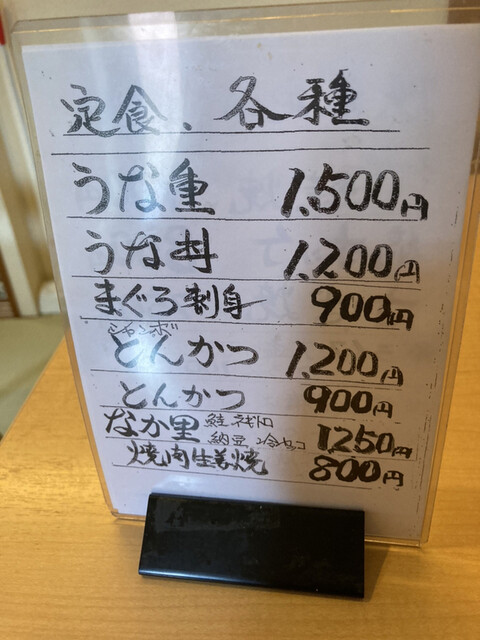 定食、各種
うな重 1,500円
うな丼 1,200円
まぐろ刺身 900円
ジャンボ
とんかつ 1,200円
とんかつ 900円
なか里 鮭 ネギトロ
納豆 冷ヤッコ 1250円
焼肉生姜焼 800円